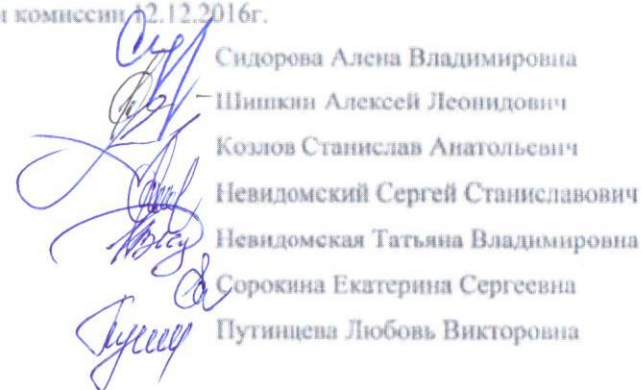 и комиссии 12.12.2016г.
Сидорова Алена Владимировна
Шишкин Алексей Леонидович
Козлов Станислав Анатольевич
Невидомский Сергей Станиславович
Невидомская Татьяна Владимировна
Сорокина Екатерина Сергеевна
Путинцева Любовь Викторовна